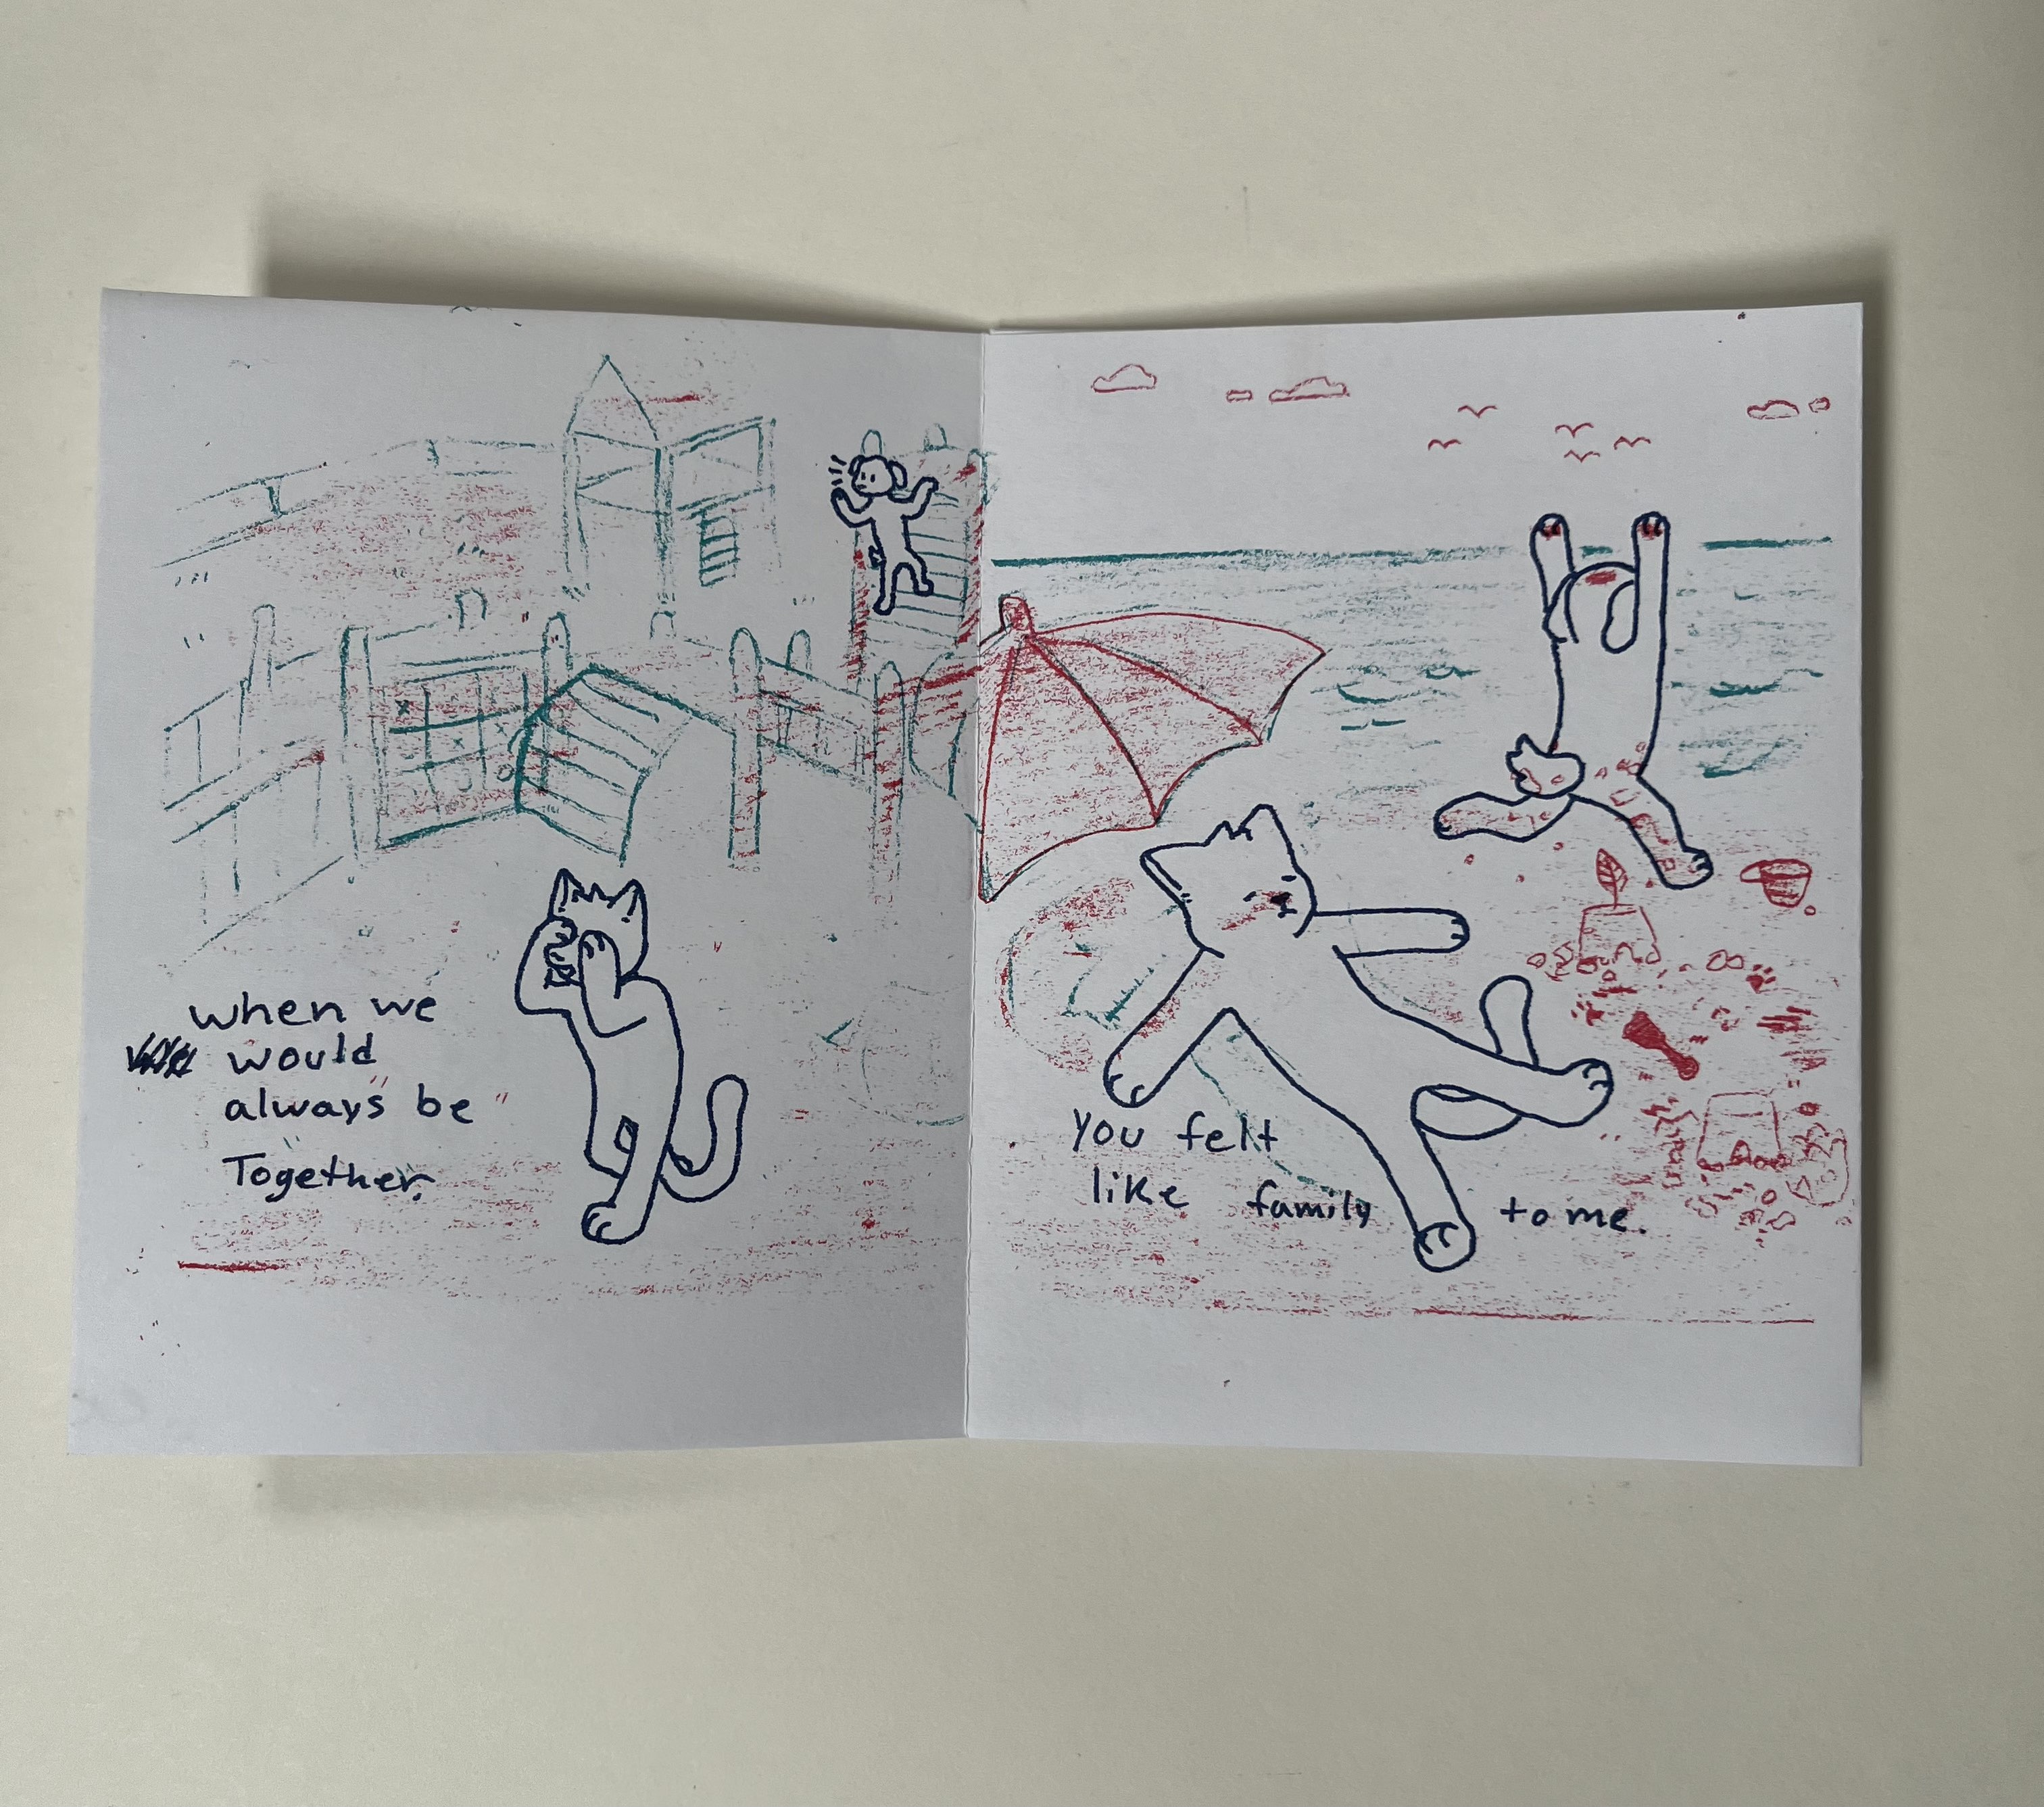 when we
would
always be
Together.
you felt
like family to me.